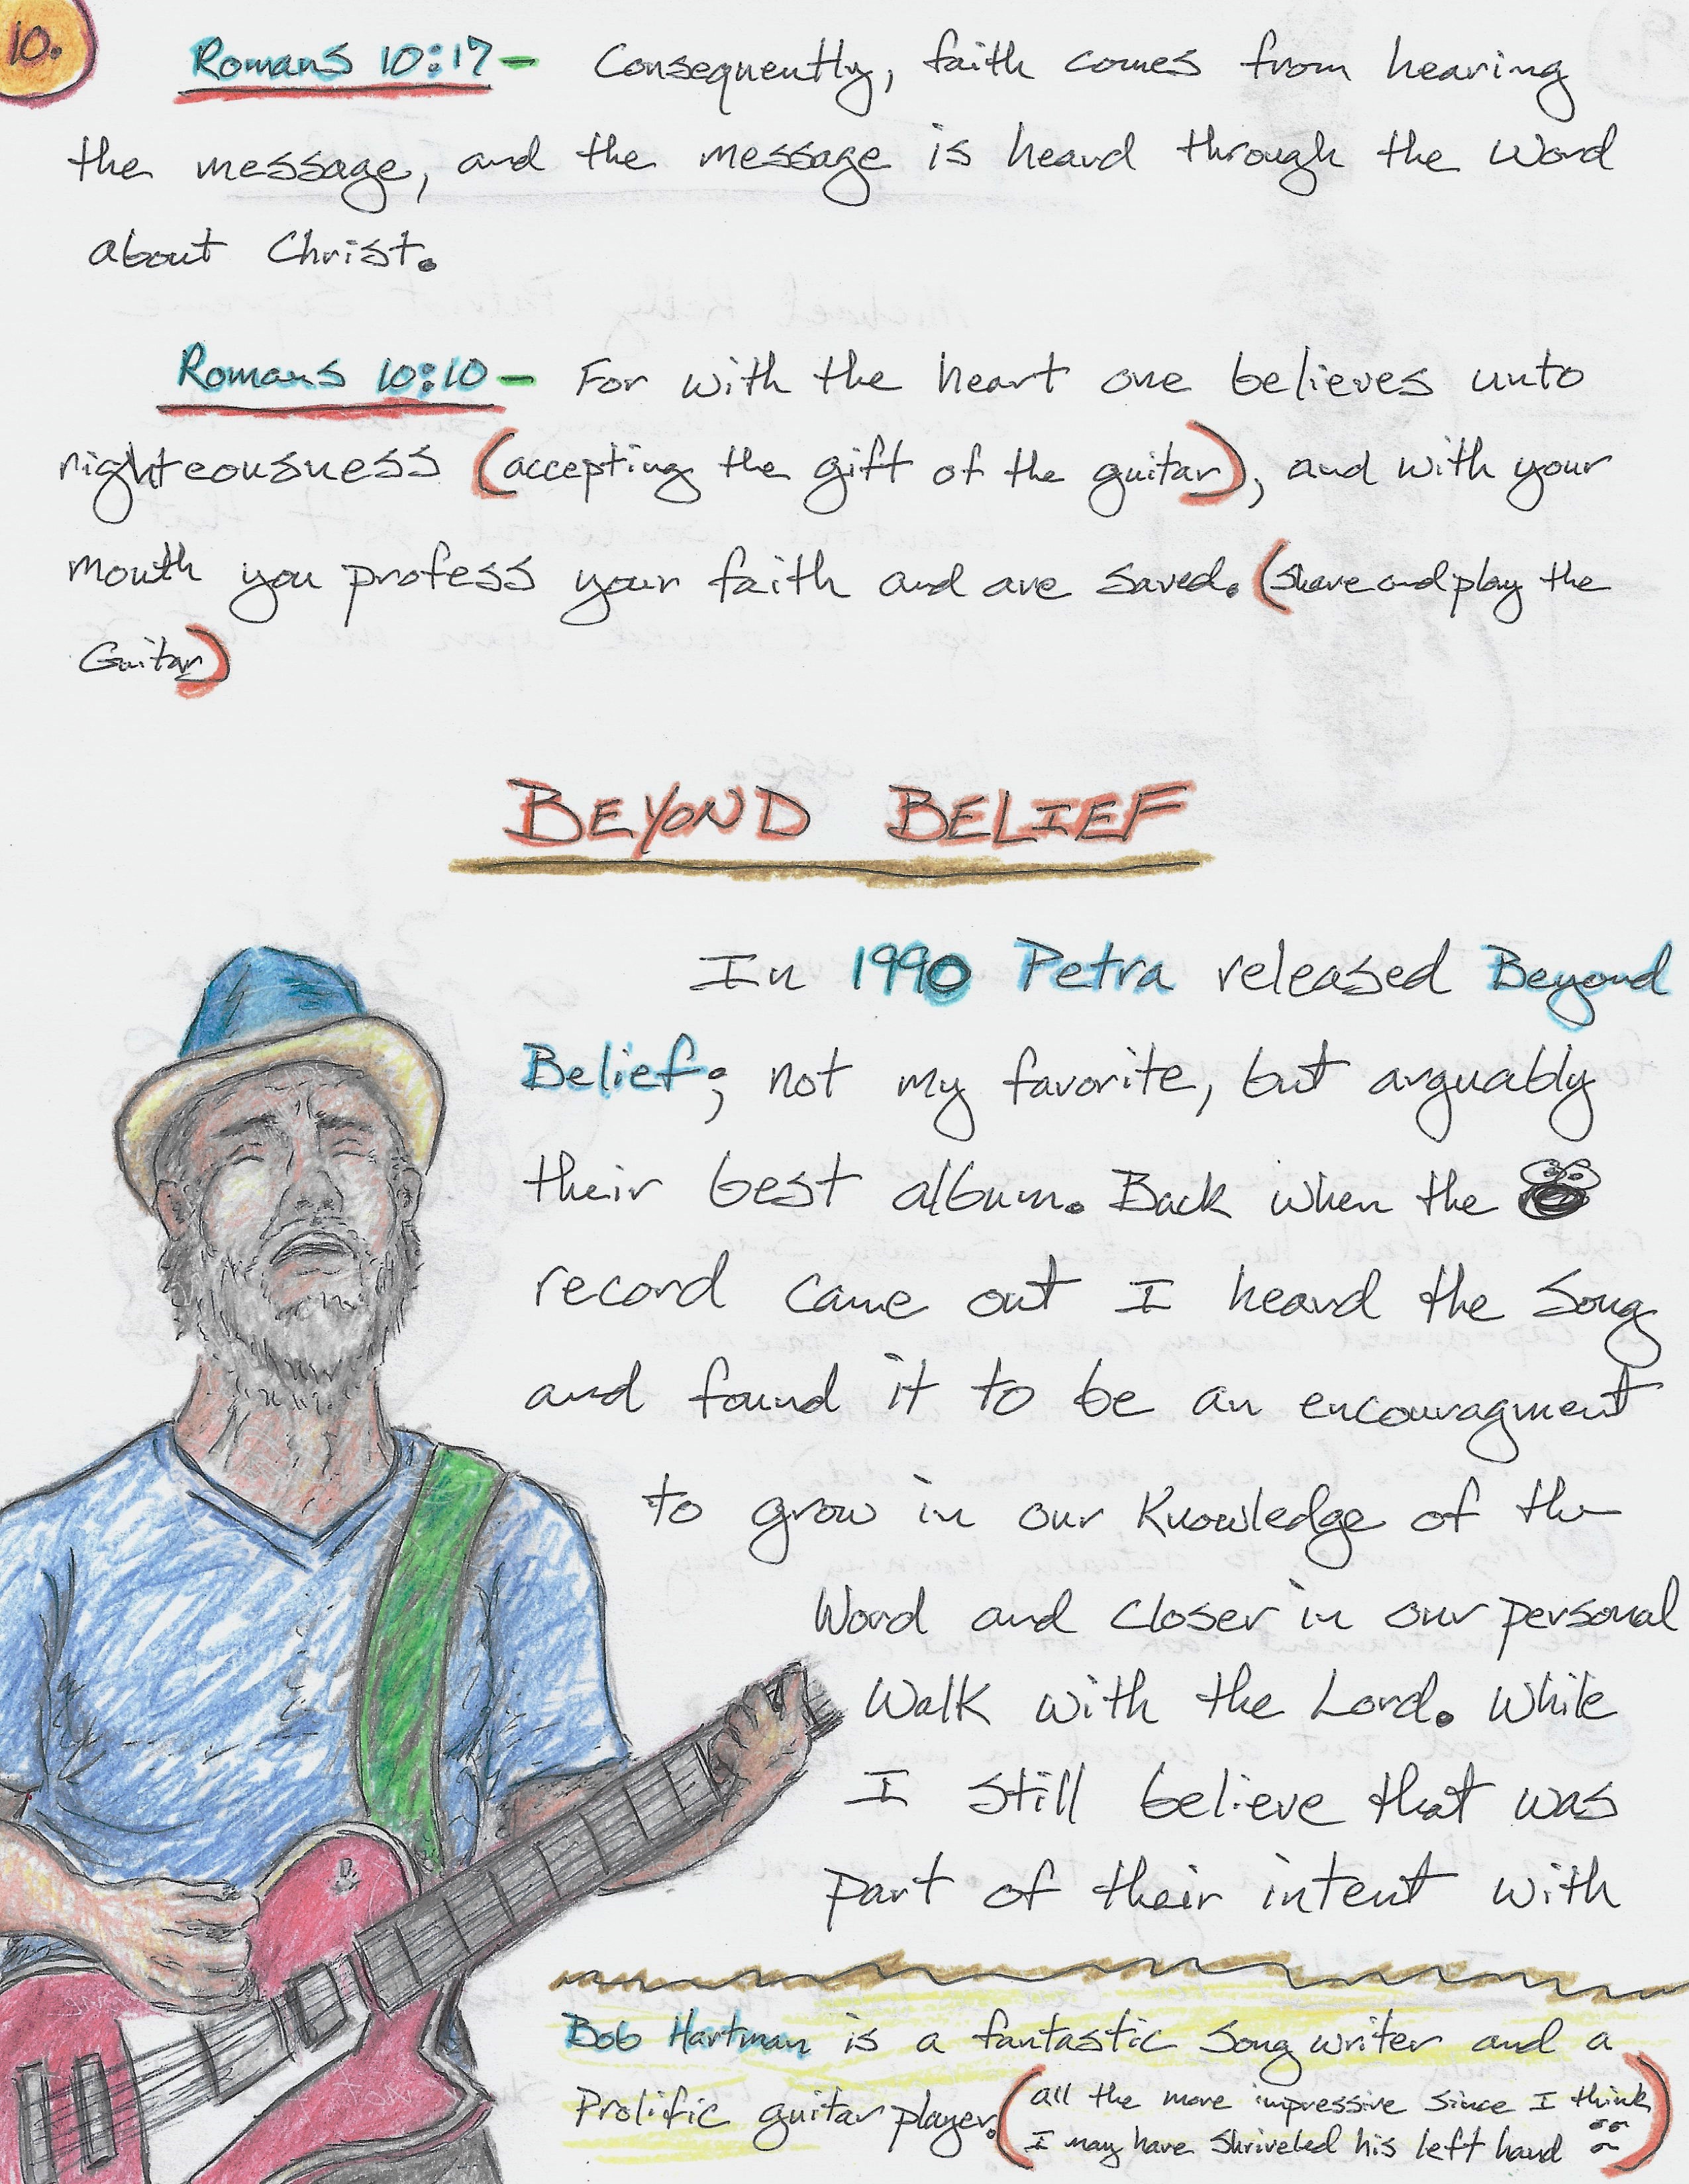 10.
Romans 10:17 - Consequently, faith comes from hearing
the message, and the message is heard through the Word
about Christ.
Romans 10:10 - For with the heart one believes unto
righteousness (accepting the gift of the guitar), and with your
mouth you profess your faith and are saved. (share and play the
Guitar)
BEYOND BELIEF
In 1990 Petra released Beyond
Belief; not my favorite, but arguably
their best album. Back when the
record came out I heard the song
and found it to be an encouragment
to grow in our Knowledge of the
Word and closer in our personal
Walk with the Lord. While
I still believe that was
part of their intent with
Bob Hartman is a fantastic song writer and a
Prolific guitar player. (all the more impressive since I think
I may have shriveled his left hand)